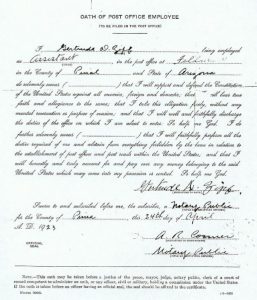 OATH OF POST OFFICE EMPLOYEE
(TO BE FILED IN THE POST OFFICE)
I, Gertrude D. being employed
as Assistant in the post office at
in the County of Pinal and State of Arizona
do solemnly swear ( ) that I will support and defend the Constitution
of the United States against all enemies, foreign and domestic; that I will bear true
faith and allegiance to the same; that I take this obligation freely, without any
mental reservation or purpose of evasion; and that I will well and faithfully discharge
the duties of the office on which I am about to enter. So help me God. I do
further solemnly swear ( ) that I will faithfully perform all the
duties required of me and abstain from everything forbidden by the laws in relation to
the establishment of post offices and post roads within the United States; and that I
will honestly and truly account for and pay over any money belonging to the said
United States which may come into my possession or control. So help me God.
Gertrude D.
Sworn to and subscribed before me, the subscriber, a Notary Public
for the County of Pima this 24th day of April
A. D. 1923
A. R. Conner
Notary Public
OFFICIAL
SEAL
NOTE.—This oath may be taken before a justice of the peace, mayor, judge, notary public, clerk of a court of record competent to administer an oath, or any officer, civil or military, holding a commission under the United States.
If the oath is taken before an officer having an official seal, the seal should be affixed to the certificate.